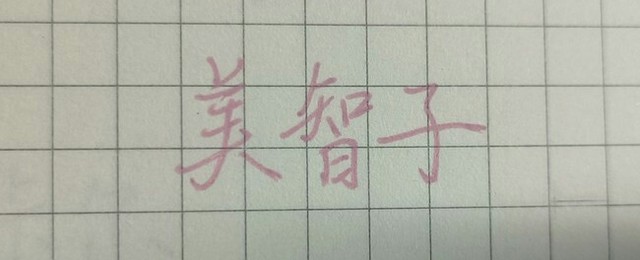 美智子